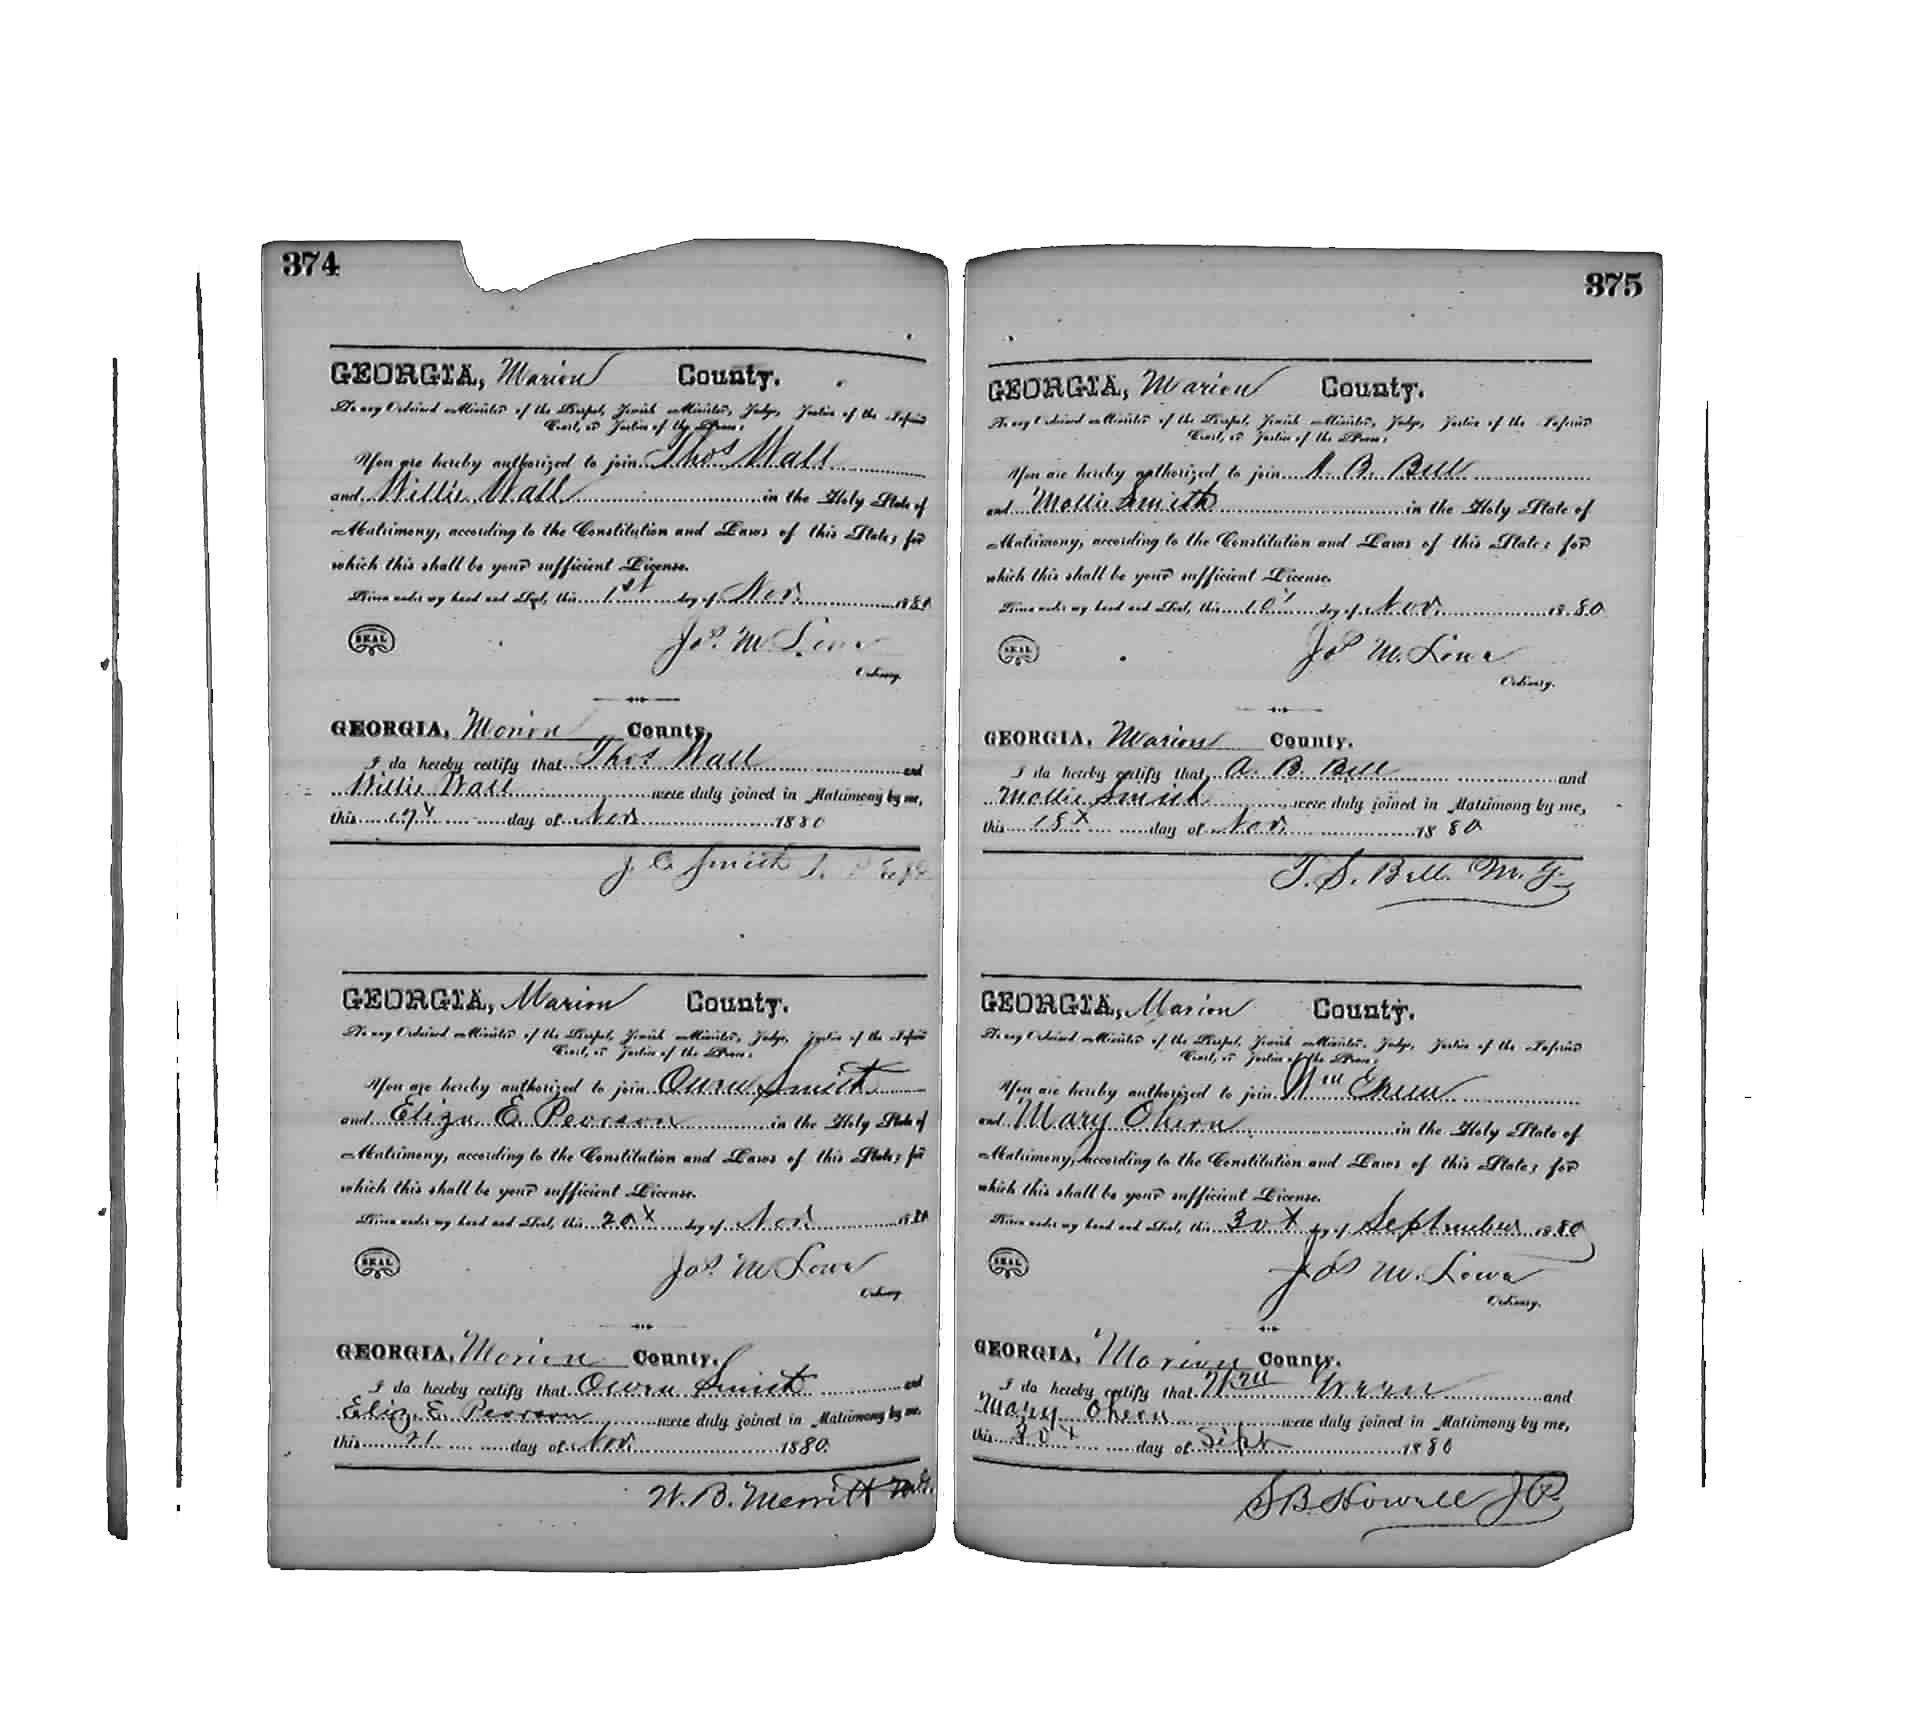 374
GEORGIA, Marion County.
To any Ordained Minister of the Gospel, Jewish Minister, Judge, Justice of the Inferior
Court, or Justice of the Peace:
You are hereby authorized to join Thos Wall
and Willie Wall in the Holy State of
Matrimony, according to the Constitution and Laws of this State; for
which this shall be your sufficient License.
Given under my hand and Seal, this 1st day of Nov. 1880
SEAL
Jas. M Lowe
Ordinary.
GEORGIA, Marion County,
I do hereby certify that Thos Wall and
Willie Wall were duly joined in Matrimony by me,
this day of Nov 1880
J. C. Smith
GEORGIA, Marion County.
To any Ordained Minister of the Gospel, Jewish Minister, Judge, Justice of the Inferior
Court, or Justice of the Peace:
You are hereby authorized to join Owen Smith
and Eliza E. Pearson in the Holy State of
Matrimony, according to the Constitution and Laws of this State; for
which this shall be your sufficient License.
Given under my hand and Seal, this 20x day of Nov 1880
SEAL
Jas. M Lowe
Ordinary.
GEORGIA, Marion County,
I do hereby certify that Owen Smith and
Eliz. E. Pearson were duly joined in Matrimony by me,
this 21 day of Nov 1880
W. B. Merritt M.G.
375
GEORGIA, Marion County.
To any Ordained Minister of the Gospel, Jewish Minister, Judge, Justice of the Inferior
Court, or Justice of the Peace:
You are hereby authorized to join A. B. Bell
and Mollie Smith in the Holy State of
Matrimony, according to the Constitution and Laws of this State; for
which this shall be your sufficient License.
Given under my hand and Seal, this 10 day of Nov. 1880
SEAL
Jas M. Lowe
Ordinary.
GEORGIA, Marion County.
I do hereby certify that A. B. Bell and
Mollie Smith were duly joined in Matrimony by me,
this 18x day of Nov. 1880
T. S. Bell M. G.
GEORGIA, Marion County.
To any Ordained Minister of the Gospel, Jewish Minister, Judge, Justice of the Inferior
Court, or Justice of the Peace:
You are hereby authorized to join Wm
and Mary Ohern in the Holy State of
Matrimony, according to the Constitution and Laws of this State; for
which this shall be your sufficient License.
Given under my hand and Seal, this 30x day of September 1880
SEAL
Jas M. Lowe
Ordinary.
GEORGIA, Marion County.
I do hereby certify that Wm and
Mary Ohern were duly joined in Matrimony by me,
this 30x day of Sept 1880
S B Howell J P.